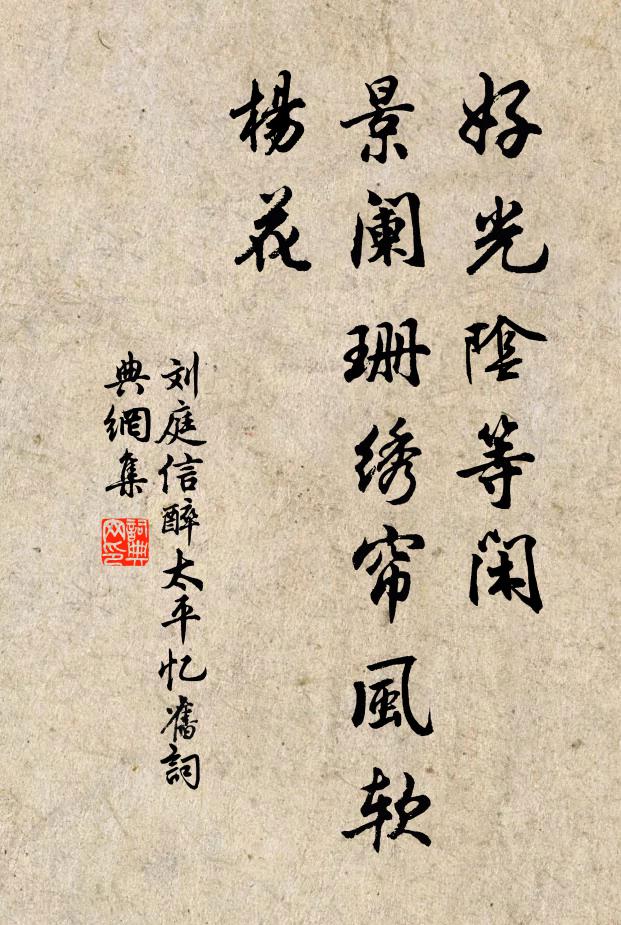 好光陰等闲
景阑珊绣帘風软
楊花
刘庭信醉太平忆舊詞
典網集
詞典
网印